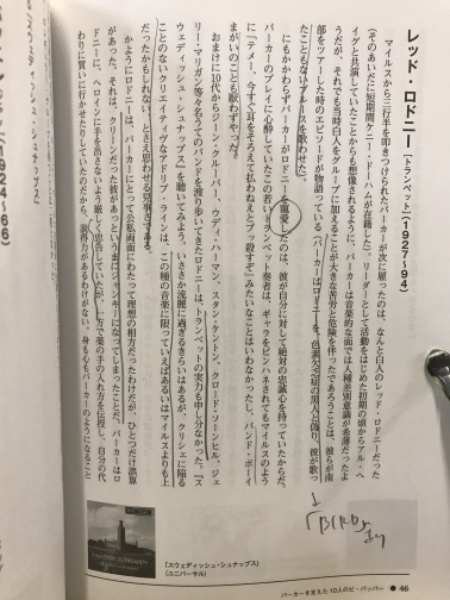 レッド・ロドニー［トランペット］（1927〜94）
マイルスから三行半を叩きつけられたパーカーが次に雇ったのは、なんと白人のレッド・ロドニーだった
（そのあいだに短期間ケニー・ドーハムが在籍した）。リーダーとして活動をはじめた初期の頃からアル・ヘ
イグと共演していたことからも想像されるように、パーカーは音楽的な面では人種差別意識が希薄だったよ
うだが、それでも当時白人をグループに加えることが大きな苦労と危険を伴ったであろうことは、彼らが南
部をツアーした時のエピソードが物語っている（パーカーはロドニーを、色素欠乏症の黒人と偽り、彼が歌っ
たこともないブルースを歌わせた）。
にもかかわらずパーカーがロドニーを寵愛したのは、彼が自分に対して絶対の忠誠心を持っていたからだ。
パーカーのプレイに心酔していたこの若いトランペット奏者は、ギャラをピンハネされてもマイルスのよう
に「テメー、今すぐ耳をそろえて払わねえとブッ殺すぞ」みたいなことはいわなかったし、バンド・ボーイ
まがいのことも厭わずやった。
おまけに10代からジーン・クルーパー、ウディ・ハーマン、スタン・ケントン、クロード・ソーンヒル、ジェ
リー・マリガン等々名うてのバンドを渡り歩いてきたロドニーは、トランペットの実力も申し分なかった。『ス
ウェディッシュ・シュナップス』を聴いてみよう。いささか流麗に過ぎるきらいはあるが、クリシェに陥る
ことのないクリエイティヴなアドリブ・ラインは、この種の音楽に限っていえばあるいはマイルスよりも上
だったかもしれない、とさえ思わせる見事さである。
かようにロドニーは、パーカーにとって公私両面にわたって理想の相方だったわけだが、ひとつだけ誤算
があった。それは、クリーンだった彼があっというまにジャンキーになってしまったことだ。パーカーはロ
ドニーに、ヘロインに手を出さないよう厳しく忠告していたが、一方で薬の手の入れ方を伝授し、自分の代
わりに買いに行かせたりしていたのだから、説得力があるわけがない。身も心もパーカーのようになること
↓「BIRD」
『スウェディッシュ・シュナップス』
（ユニバーサル）
パーカーを支えた10人のビ・バッパー ● 46